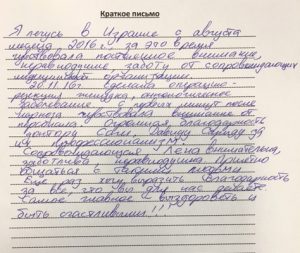 Краткое письмо
Я лечусь в Израиле с августа
месяца 2016 г. за это время
чувствовала постоянное внимание,
неравнодушие, заботу от сопровождающих
медицинской организации.
20.11.16г сделали операцию -
удаления желудка, онкологическое
заболевание. С первых минут после
наркоза чувствовала внимание от
персонала. Огромная благодарность
доктора Соги, Давиду за
их профессионализм.
Сопровождающая Лена внимательна,
заботлива, неравнодушна. Приятно
общаться с такими людьми
Еще раз хочу выразить благодарность
за все, что вы для нас делаете.
Самое главное - выздороветь и
быть счастливыми!!!